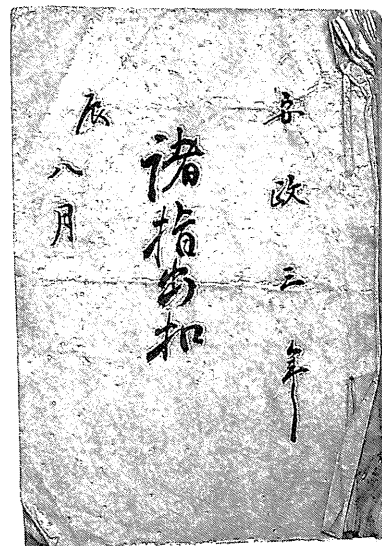 安政三年
諸指出扣
辰八月